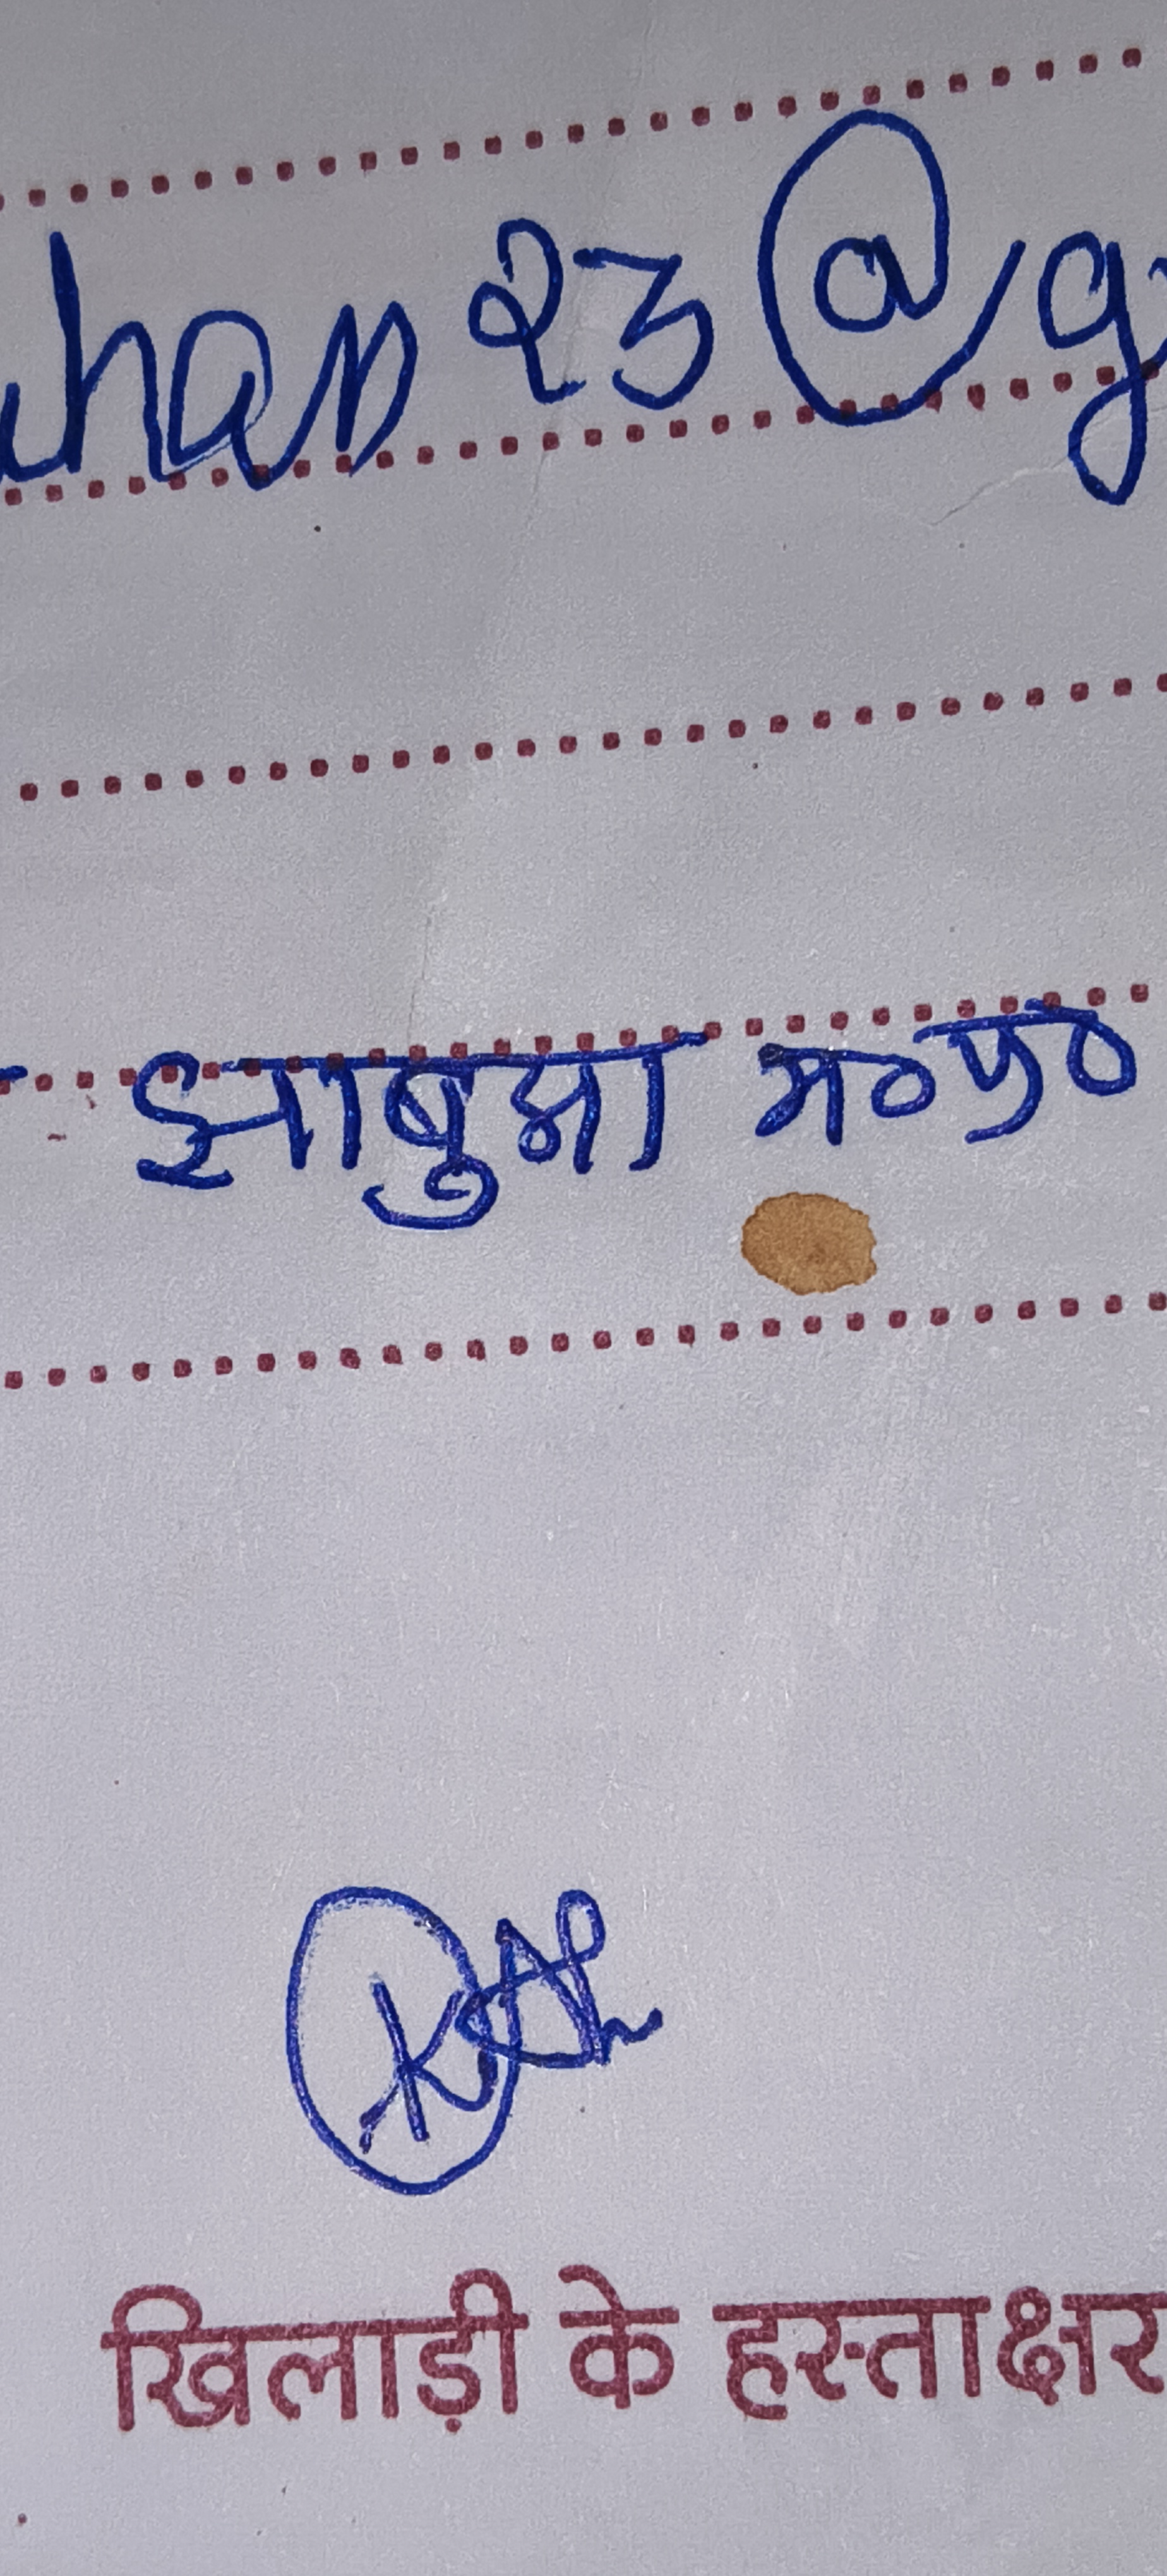 uhan 23 @g
झाबुआ म०प्र०
खिलाड़ी के हस्ताक्षर